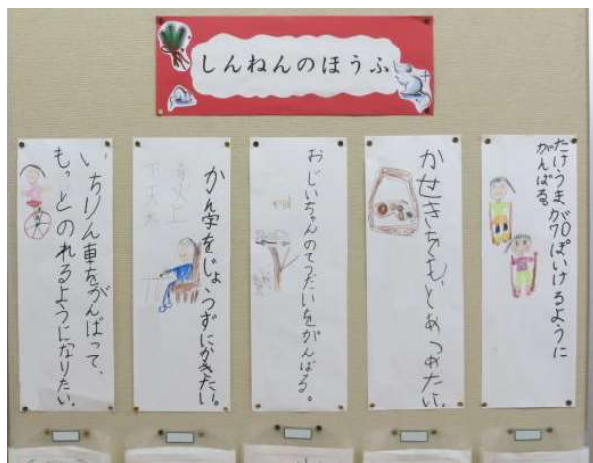 しんねんのほうふ
たけうまが70ぽいけるように
がんばる。
かせきをもっとあつめたい。
おじいちゃんのてつだいをがんばる。
かん字をじょうずにかきたい。
いちりん車をがんばって、
もっとのれるようになりたい。